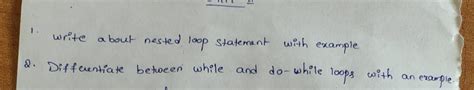 1. write about nested loop statement with example
2. Differentiate between while and do-while loops with an example